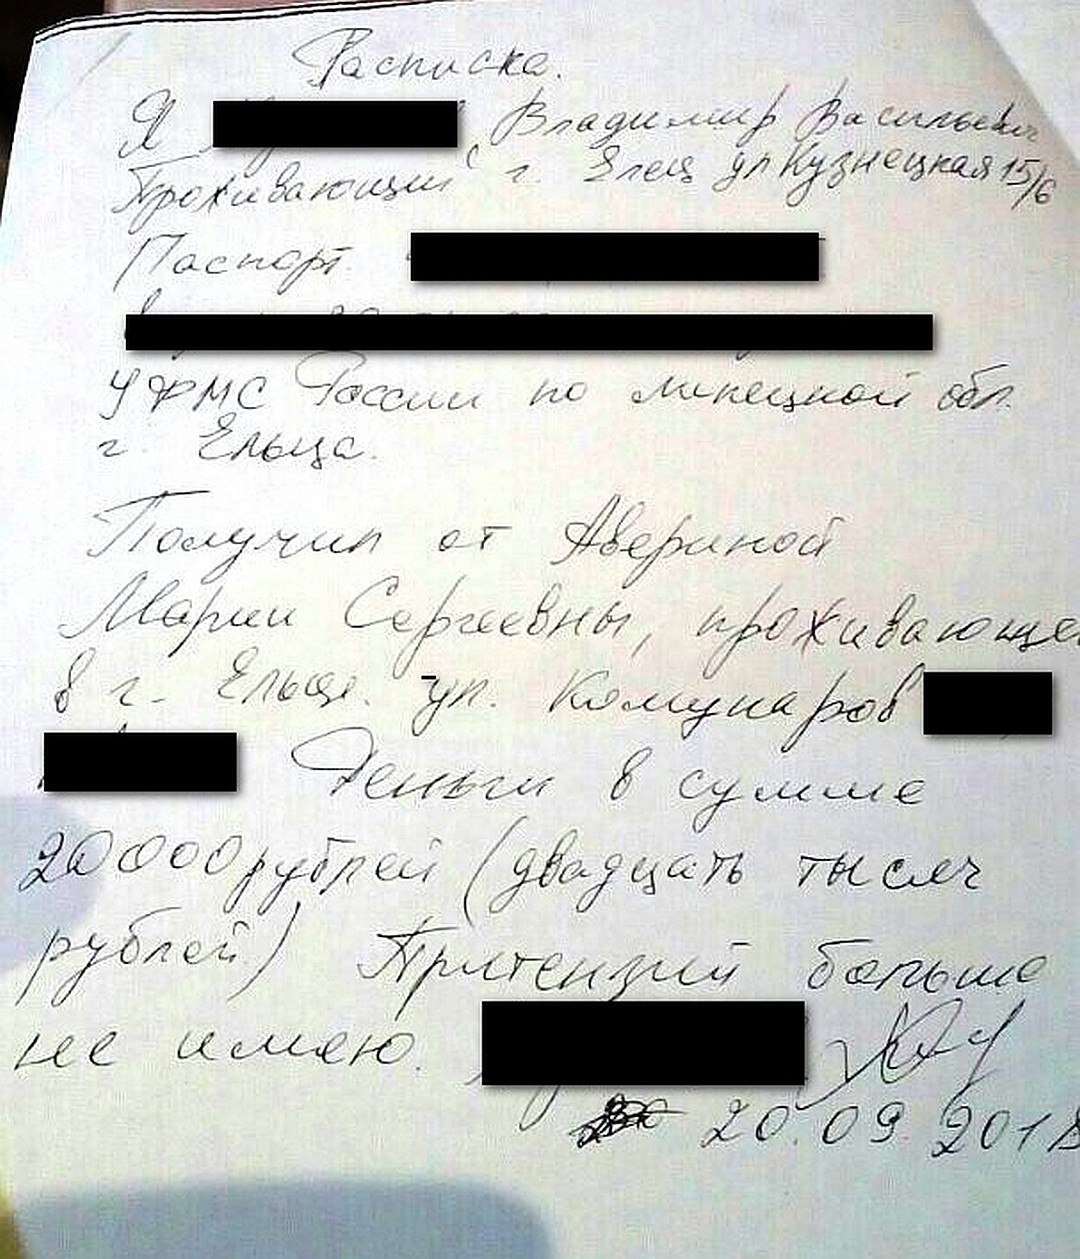 Расписка.
Я Владимир Васильевич
Проживающий г. Елец ул Кузнецкая 15/6
Паспорт
УФМС России по липецкой обл.
г. Ельца.
Получил от Авериной
Марии Сергеевны, проживающе
в г. Ельце. ул. Комунаров
Деньги в сумме
20000 рублей (двадцать тысяч
рублей) Притензий больше
не имею.
20.09.2018